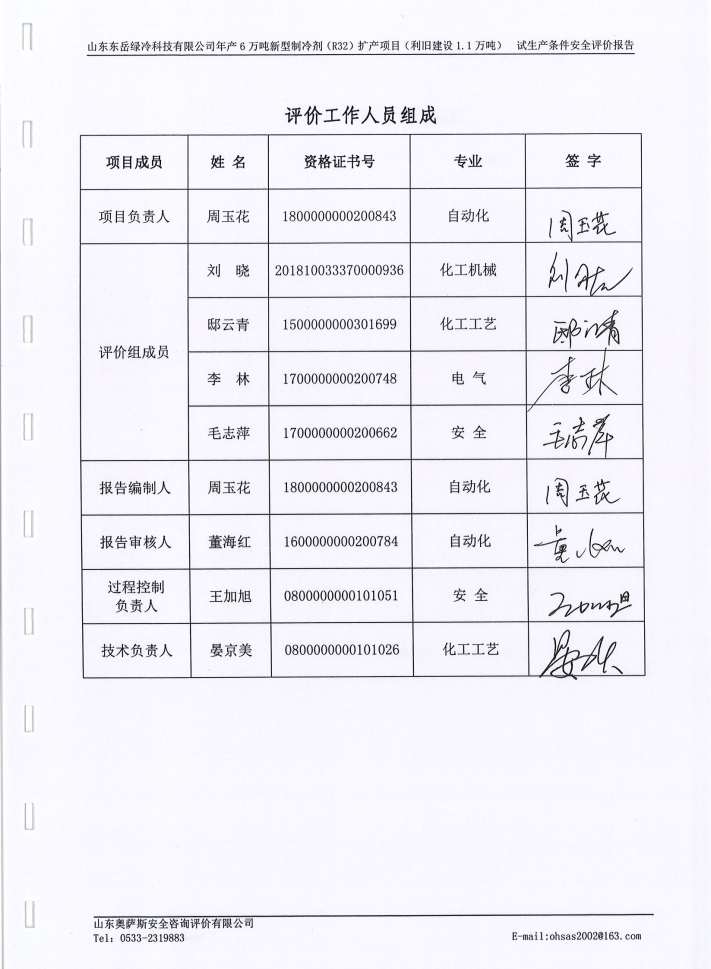 山东东岳绿冷科技有限公司年产6万吨新型制冷剂（R32）扩产项目（利旧建设1.1万吨） 试生产条件安全评价报告
评价工作人员组成
项目成员 姓 名 资格证书号 专业 签 字
项目负责人 周玉花 1800000000200843 自动化 周玉花
评价组成员
刘 晓 201810033370000936 化工机械
邸云青 1500000000301699 化工工艺 邸云青
李 林 1700000000200748 电 气 李林
毛志萍 1700000000200662 安 全 毛志萍
报告编制人 周玉花 1800000000200843 自动化 周玉花
报告审核人 董海红 1600000000200784 自动化
过程控制
负责人 王加旭 0800000000101051 安 全
技术负责人 晏京美 0800000000101026 化工工艺
山东奥萨斯安全咨询评价有限公司
Tel：0533-2319883 E-mail:ohsas2002@163.com